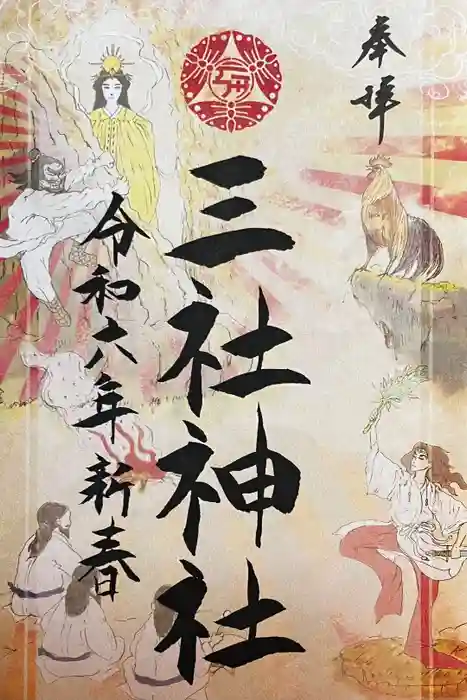 奉拝
三社神社
令和六年新春